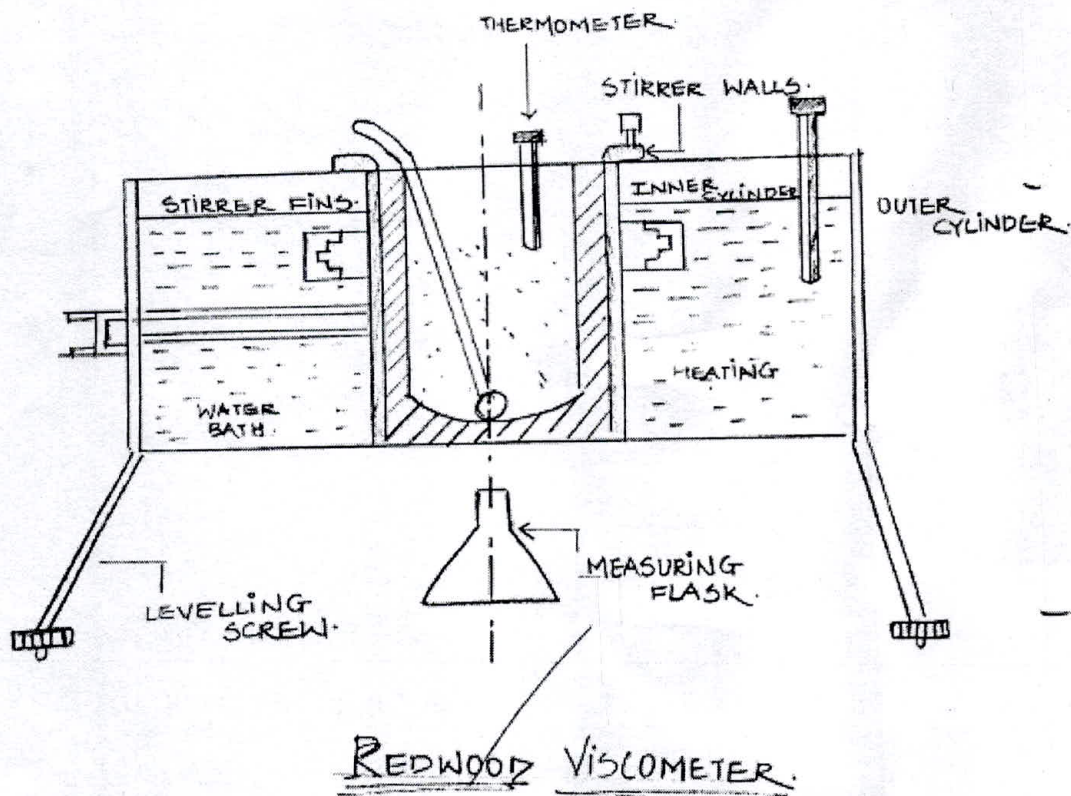 THERMOMETER.
STIRRER WALLS.
STIRRER FINS.
INNER
CYLINDER
OUTER
CYLINDER.
HEATING
WATER
BATH.
MEASURING
FLASK.
LEVELLING
SCREW.
REDWOOD VISCOMETER.